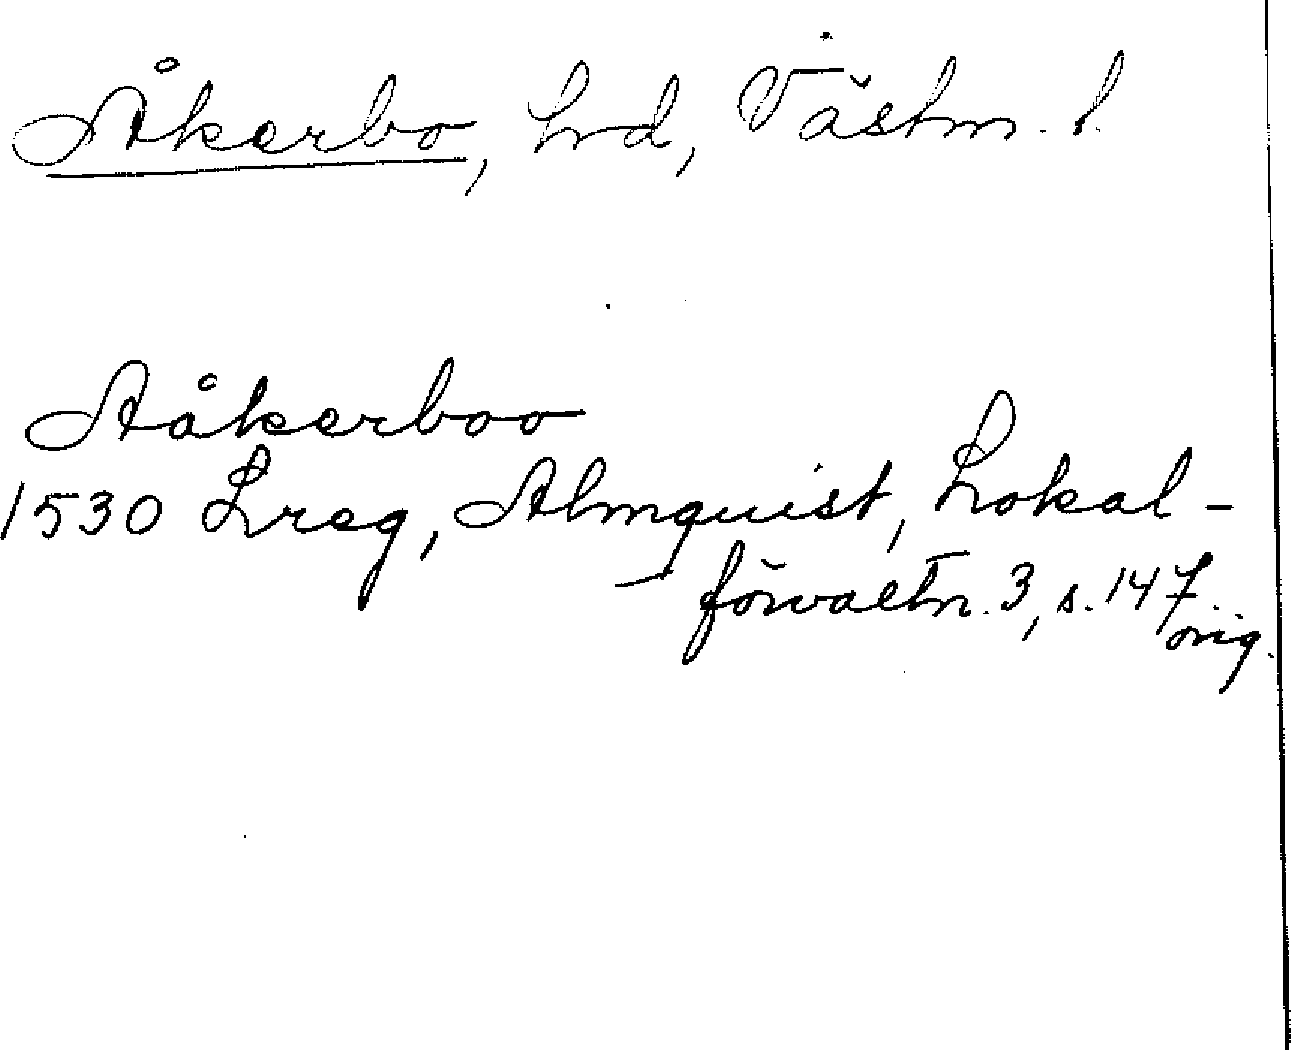 Åkerbo, hrd, Västm. l.
Aåkerboo
1530 Lreg, Almquist, Lokal-
förvaltn. 3, s. 147.
orig.